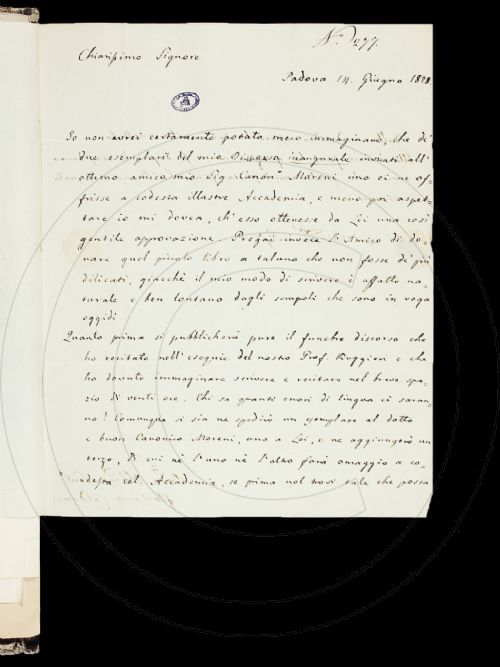 N.° 1277.
Chiarissimo Signore
Padova 14. Giugno 1828.
Io non avrei certamente potuto meco immaginare, che de'
due esemplari del mio Discorso inaugurale inviati all'
ottimo amico mio Sig. Canon.° Moreni uno ei ne of-
frisse a codesta illustre Accademia, e meno poi aspet-
tare io mi dovea, ch'esso ottenesse da Lei una così
gentile approvazione. Pregai invece l'Amico di do-
nare quel picolo libro a taluno che non fosse de' più
dilicati, giacchè il mio modo di scrivere è affatto na-
turale e ben lontano dagli scrupoli che sono in voga
oggidì
Quanto prima si pubblicherà pure il funebre discorso che
ho recitato nell'esequie del nostro Prof. Ruggieri e che
ho dovuto immaginare scrivere e recitare nel breve spa-
zio di venti ore. Chi sa quanti errori di lingua ci saran-
no! Comunque si sia ne spedirò un esemplare al dotto
e buon Canonico Moreni, uno a Lei, e ne aggiungerò un
terzo, di cui nè l'uno nè l'altro farà omaggio a co-
desta cel. Accademia, se prima nol trovi tale che possa